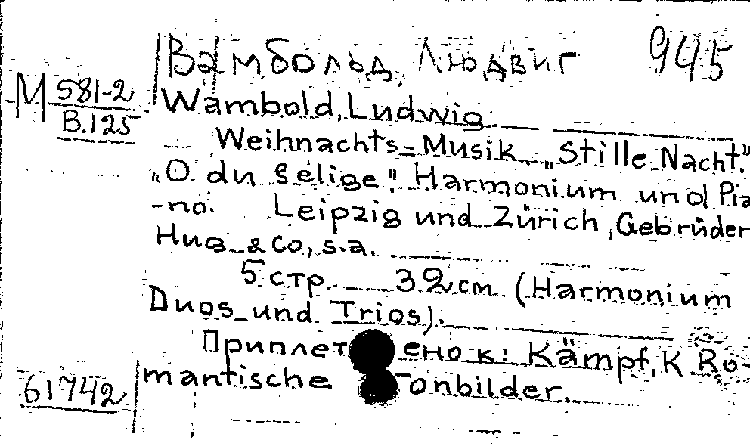 Вамбольд, Людвиг 945
М 581-2
В.125
Wambold, Ludwig
Weihnachts=Musik „Stille Nacht."
„O du selige". Harmonium und Pia
-no. Leipzig und Zürich, Gebrüder
Hug & Co, s.a.
5 стр. 32 см (Harmonium
Duos und Trios).
Приплетено к: Kämpf, K Ro-
mantische Tonbilder.
61742